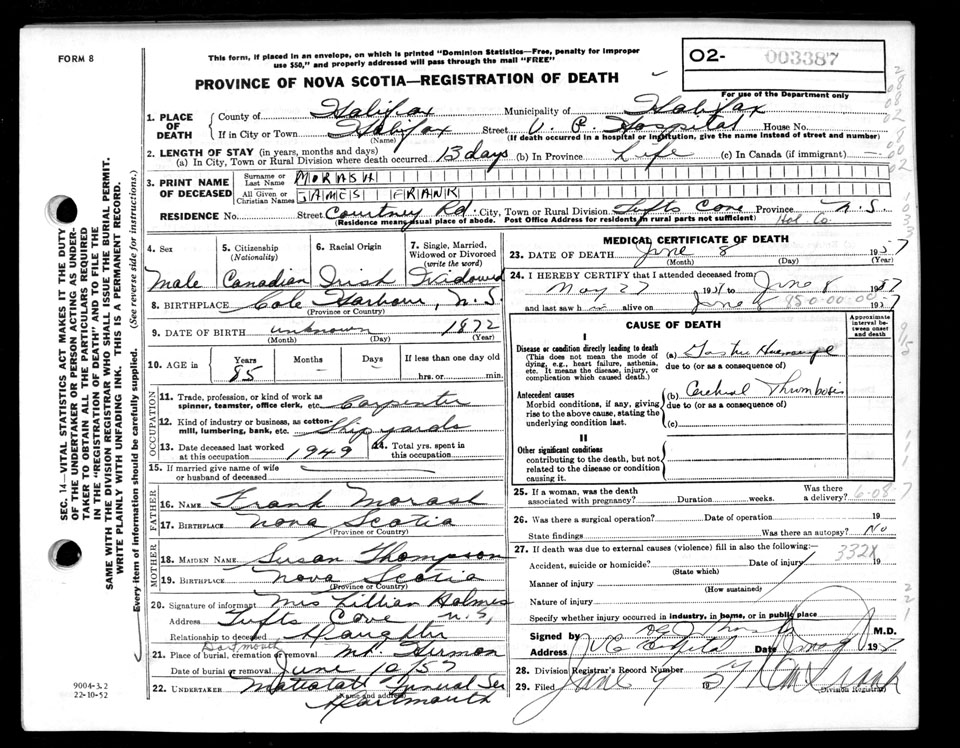 FORM 8
This form, if placed in an envelope, on which is printed "Dominion Statistics—Free, penalty for improper
use $50," and properly addressed will pass through the mail "FREE"
PROVINCE OF NOVA SCOTIA—REGISTRATION OF DEATH
O2- 003387
For use of the Department only
1. PLACE OF DEATH
County of Halifax Municipality of Halifax
If in City or Town Halifax Street V. G. Hospital House No.
(Name) (If death occurred in a hospital or institution, give the name instead of street and number)
2. LENGTH OF STAY (in years, months and days)
(a) In City, Town or Rural Division where death occurred 13 days (b) In Province Life (c) In Canada (if immigrant) —
3. PRINT NAME OF DECEASED
Surname or Last Name MORASH
All Given or Christian Names JAMES FRANK
RESIDENCE No. Street Courtney Rd. City, Town or Rural Division Tufts Cove Province N.S.
(Residence means usual place of abode. Post Office Address for residents in rural parts not sufficient) Hal. Co.
4. Sex
Male
5. Citizenship
(Nationality)
Canadian
6. Racial Origin
Irish
7. Single, Married, Widowed or Divorced
(write the word)
Widowed
8. BIRTHPLACE Cole Harbour, N.S.
(Province or Country)
9. DATE OF BIRTH unknown 1872
(Month) (Day) (Year)
10. AGE in Years 85 Months — Days — If less than one day old
hrs. or min.
OCCUPATION
11. Trade, profession, or kind of work as
spinner, teamster, office clerk, etc. Carpenter
12. Kind of industry or business, as cotton-
mill, lumbering, bank, etc. Shipyards
13. Date deceased last worked
at this occupation 1949
14. Total yrs. spent in
this occupation
15. If married give name of wife
or husband of deceased
FATHER
16. NAME Frank Morash
17. BIRTHPLACE Nova Scotia
(Province or Country)
MOTHER
18. MAIDEN NAME Susan Thompson
19. BIRTHPLACE Nova Scotia
(Province or Country)
20. Signature of informant Mrs Lillian Holmes
Address Tufts Cove N.S.
Relationship to deceased Daughter
Dartmouth
21. Place of burial, cremation or removal Mt. Hermon
Date of burial or removal June 10/57
22. UNDERTAKER Mattatall Funeral Ser
(Name and address)
Dartmouth
MEDICAL CERTIFICATE OF DEATH
23. DATE OF DEATH June 8 1957
(Month) (Day) (Year)
24. I HEREBY CERTIFY that I attended deceased from
May 27 1957 to June 8 1957
and last saw h alive on June 8 1957
850-00-00-
CAUSE OF DEATH
Approximate interval between onset and death
I
Disease or condition directly leading to death
(This does not mean the mode of
dying, e.g., heart failure, asthenia,
etc. It means the disease, injury, or
complication which caused death.)
(a)
due to (or as a consequence of)
Antecedent causes
Morbid conditions, if any, giving
rise to the above cause, stating the
underlying condition last.
(b) Cerebral Thrombosis
due to (or as a consequence of)
(c)
II
Other significant conditions
contributing to the death, but not
related to the disease or condition
causing it.
25. If a woman, was the death
associated with pregnancy? Duration weeks. Was there a delivery?
6-08-7
26. Was there a surgical operation? Date of operation 19
State findings Was there an autopsy? No
27. If death was due to external causes (violence) fill in also the following:—
332X
Accident, suicide or homicide? Date of injury 19
(State which)
Manner of injury
(How sustained)
Nature of injury
Specify whether injury occurred in industry, in home, or in public place
Signed by M.D.
Address V G Hospital Date June 9 1957
28. Division Registrar's Record Number
29. Filed June 9 1957
Division Registrar
SEC. 14—VITAL STATISTICS ACT MAKES IT THE DUTY
OF THE UNDERTAKER OR PERSON ACTING AS UNDER-
TAKER TO OBTAIN ALL THE PARTICULARS REQUIRED
IN THE "REGISTRATION OF DEATH" AND TO FILE THE
SAME WITH THE DIVISION REGISTRAR WHO SHALL ISSUE THE BURIAL PERMIT.
WRITE PLAINLY WITH UNFADING INK. THIS IS A PERMANENT RECORD.
Every item of information should be carefully supplied. (See reverse side for instructions.)
9004-3.2
22-10-52